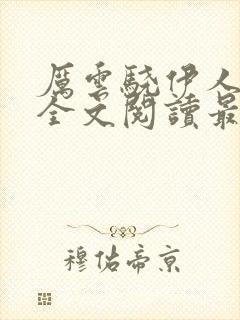 厲雲騐伊人
全文閱讀最
穆佑帝京